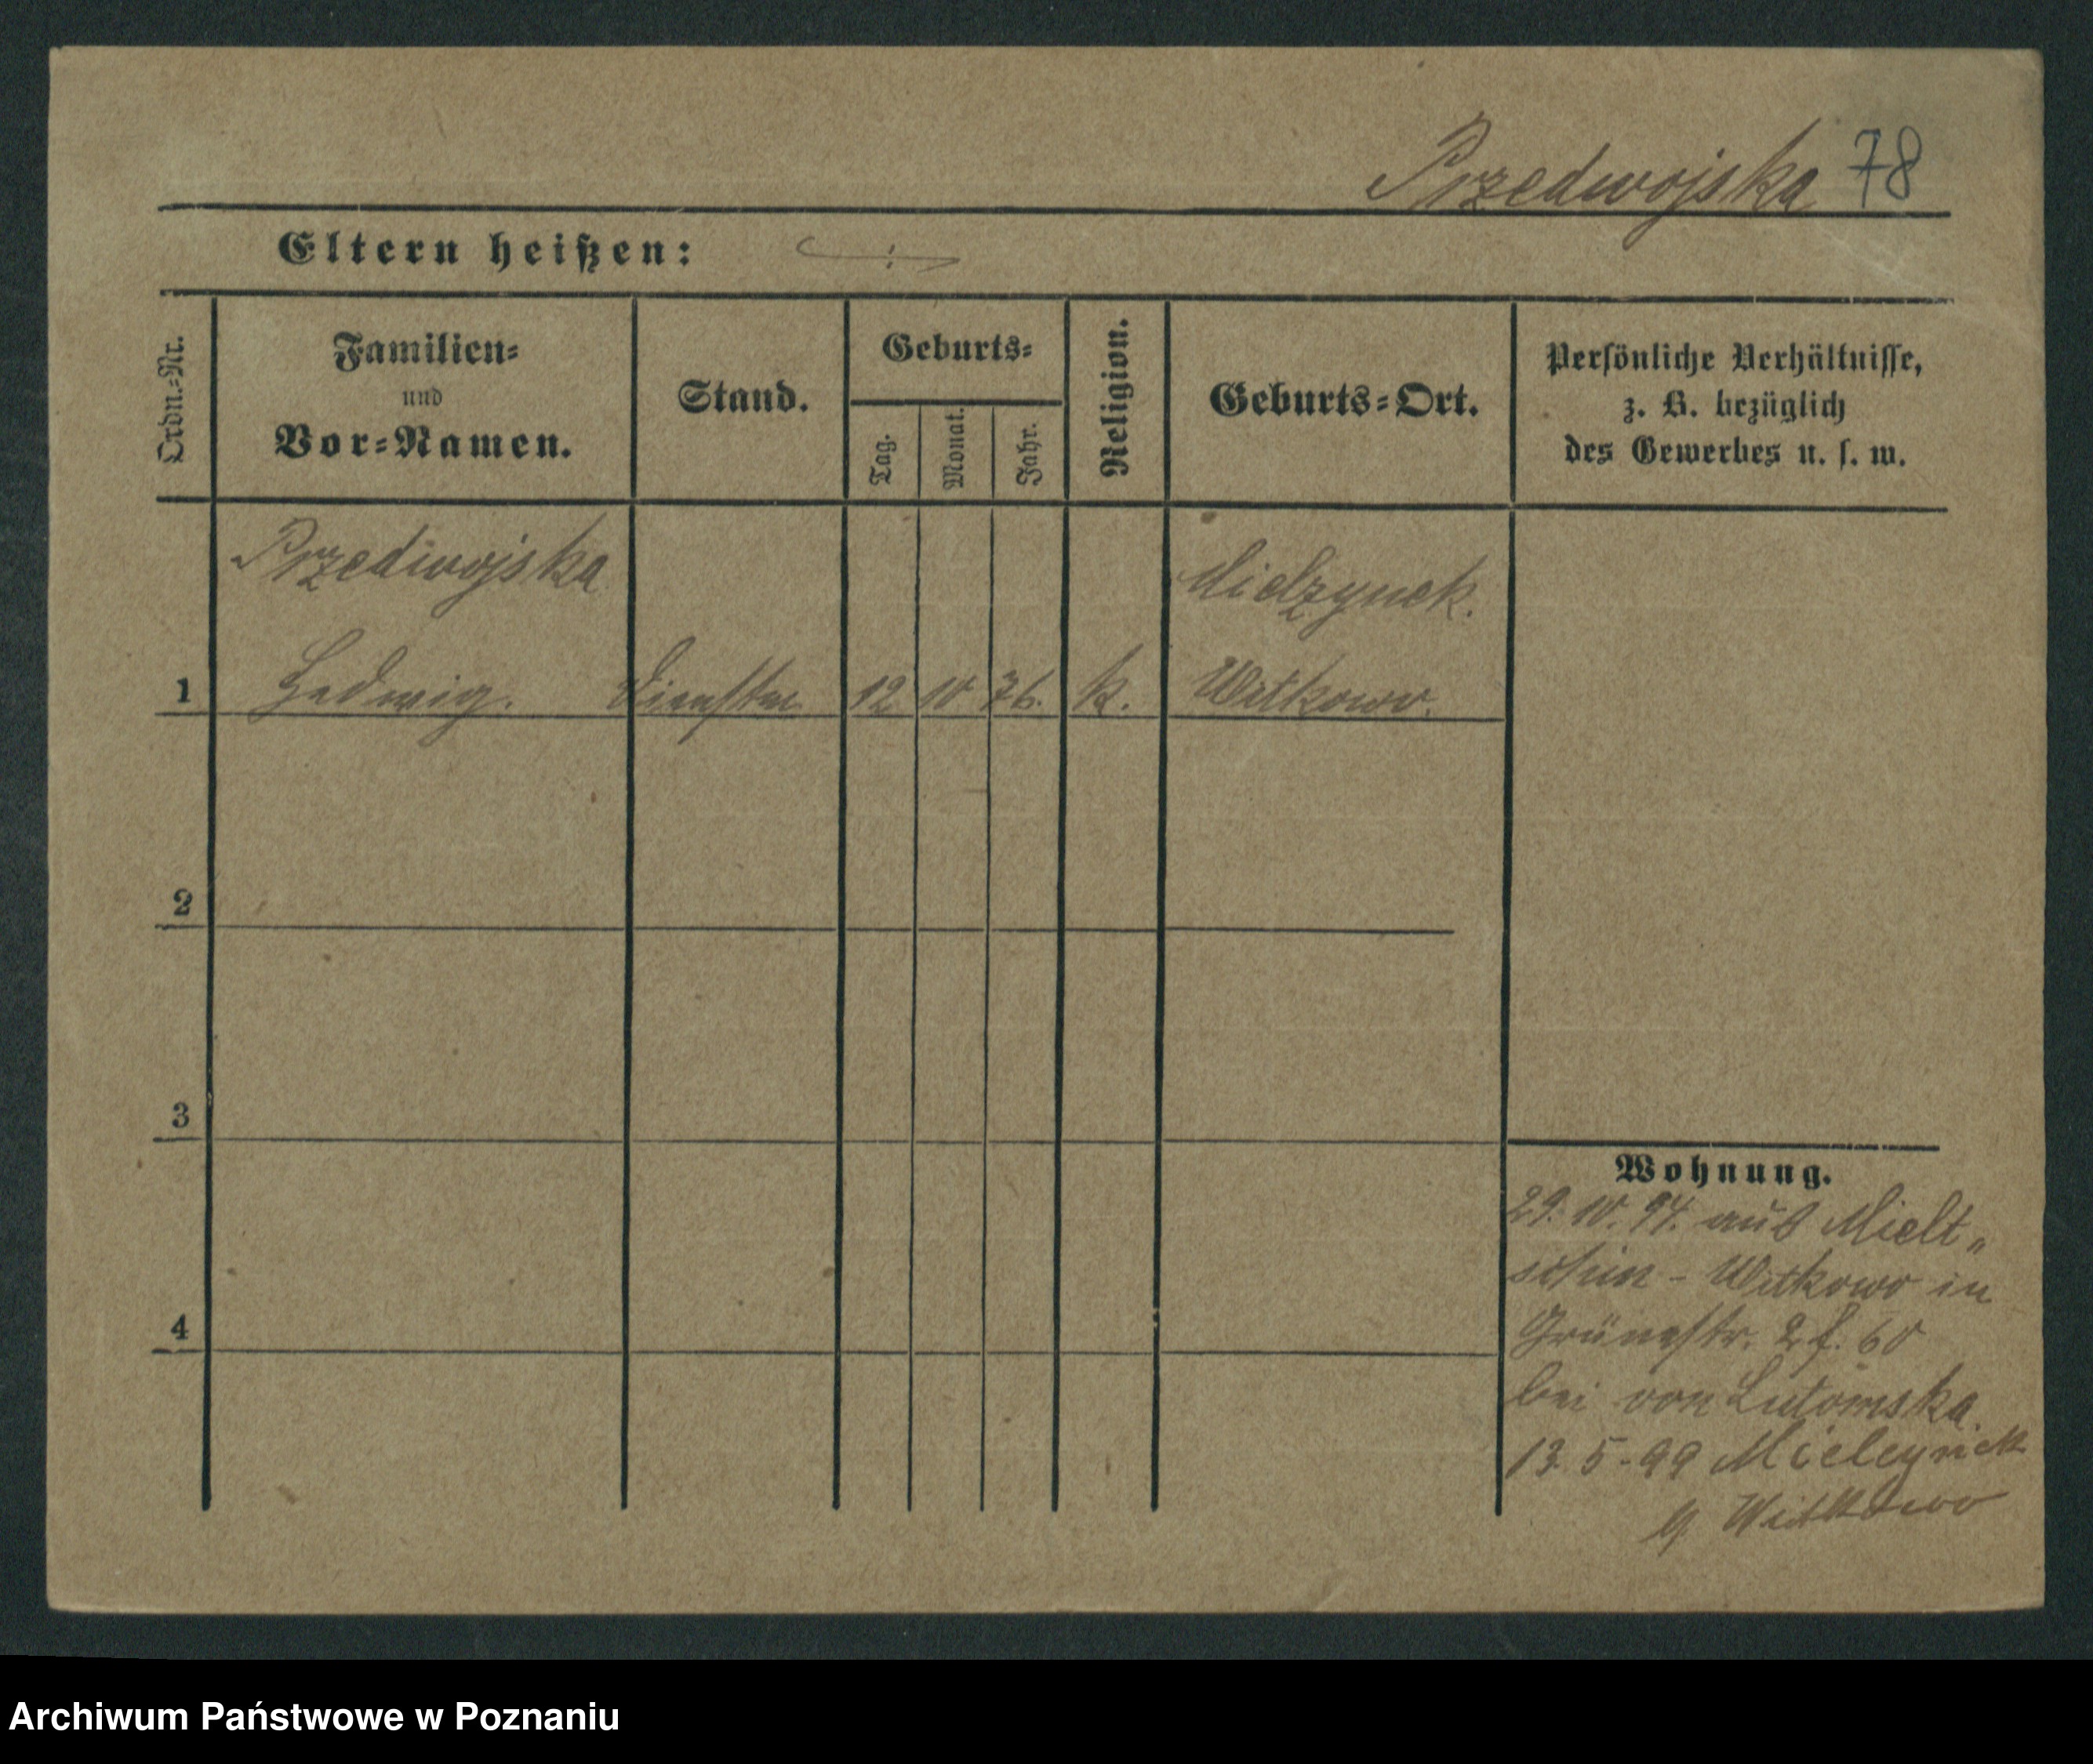 Przedwojska 78
Eltern heißen: ÷
Ordn.=Nr.
Familien=
und
Vor=Namen.
Stand.
Geburts=
Tag.
Monat.
Jahr.
Religion.
Geburts=Ort.
Persönliche Verhältnisse,
z. B. bezüglich
des Gewerbes u. s. w.
Przedwojska Mielzynek.
1 Hedwig. 12 10 76. k. Witkowo.
2
3
4
Wohnung.
29. 10. 94. aus Mielt„
schin - Witkowo in
Grünestr. 2 f. 60
bei von Lutomska.
13. 5 - 99
Witkowo
Archiwum Państwowe w Poznaniu